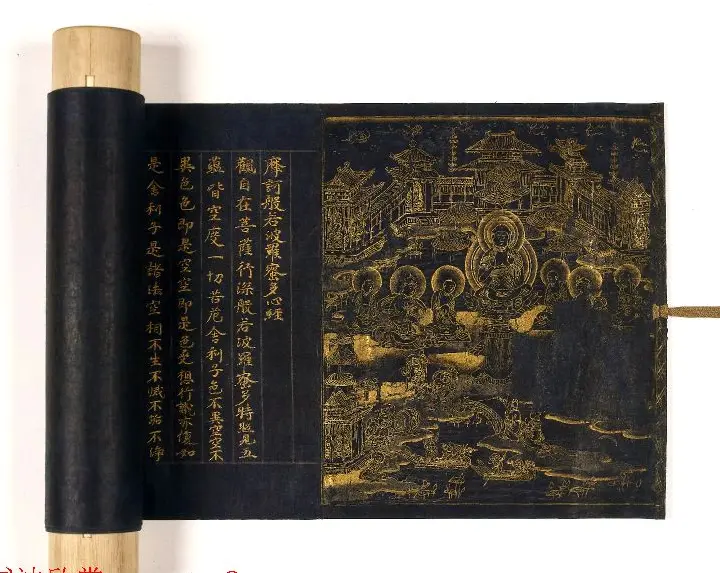 摩訶般若波羅蜜多心經
觀自在菩薩行深般若波羅蜜多時照見五
蘊皆空度一切苦厄舍利子色不異空空不
異色色即是空空即是色受想行識亦復如
是舍利子是諸法空相不生不滅不垢不淨